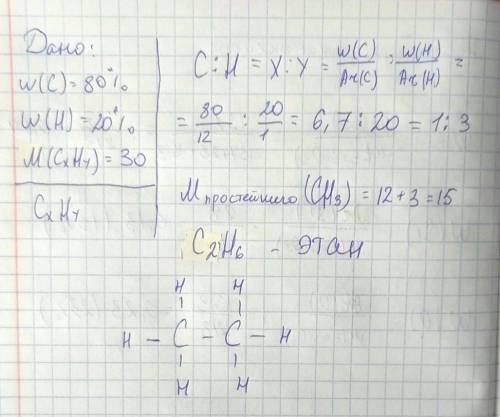 Дано:
W(C) = 80%
W(H) = 20%
M(CxHy) = 30
CxHy
C : H = X : Y = W(C)/Ar(C) : W(H)/Ar(H) =
= 80/12 : 20/1 = 6,7 : 20 = 1 : 3
M простейшего (CH3) = 12 + 3 = 15
C2H6 - этан
H H
H - C - C - H
H H